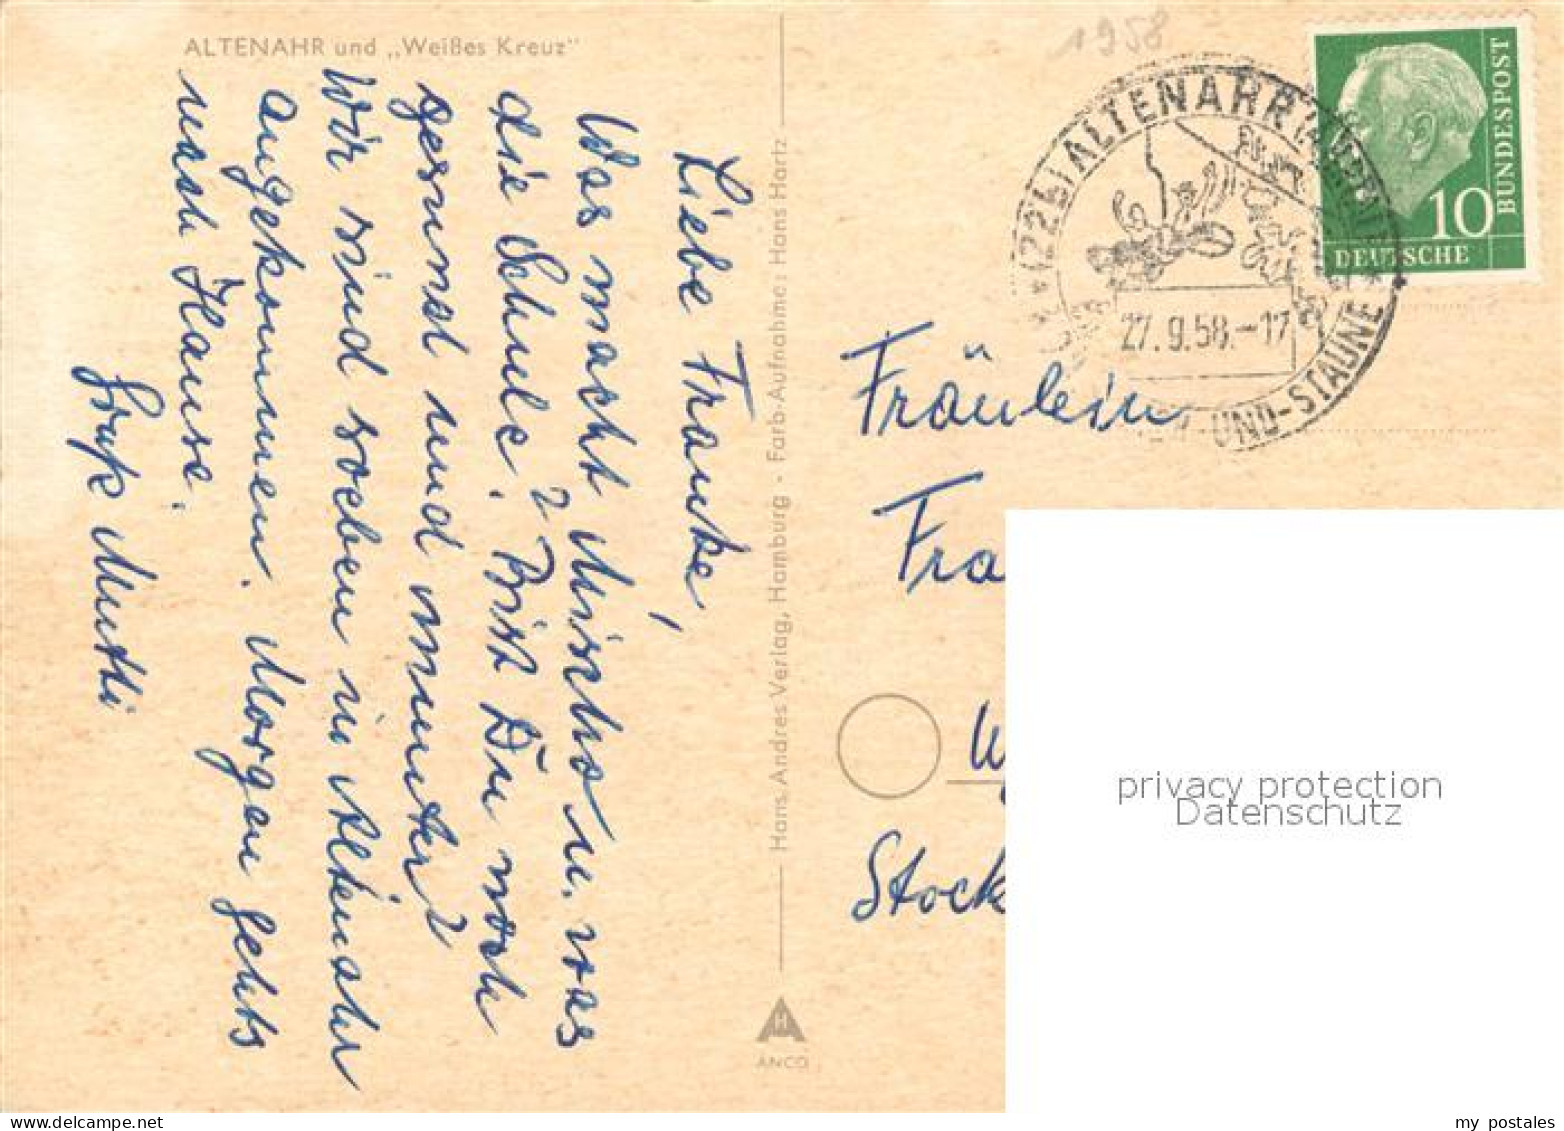 ALTENAHR und „Weißes Kreuz"
1958
(22b) ALTENAHR (AHR
27.9.58.-17
UND-STAUNE
BUNDESPOST
10
DEUTSCHE
Liebe Frauke,
Was macht Mischa u. was
die Schule? Bist Du noch
gesund und munter?
Wir sind soeben in Altenahr
angekommen. Morgen gehts
nach Hause.
Gruß Mutti
Hans Andres Verlag, Hamburg · Farb-Aufnahme: Hans Hartz
H
ANCO
Fräulein
Fra
W
Stock
privacy protection
Datenschutz
my postales